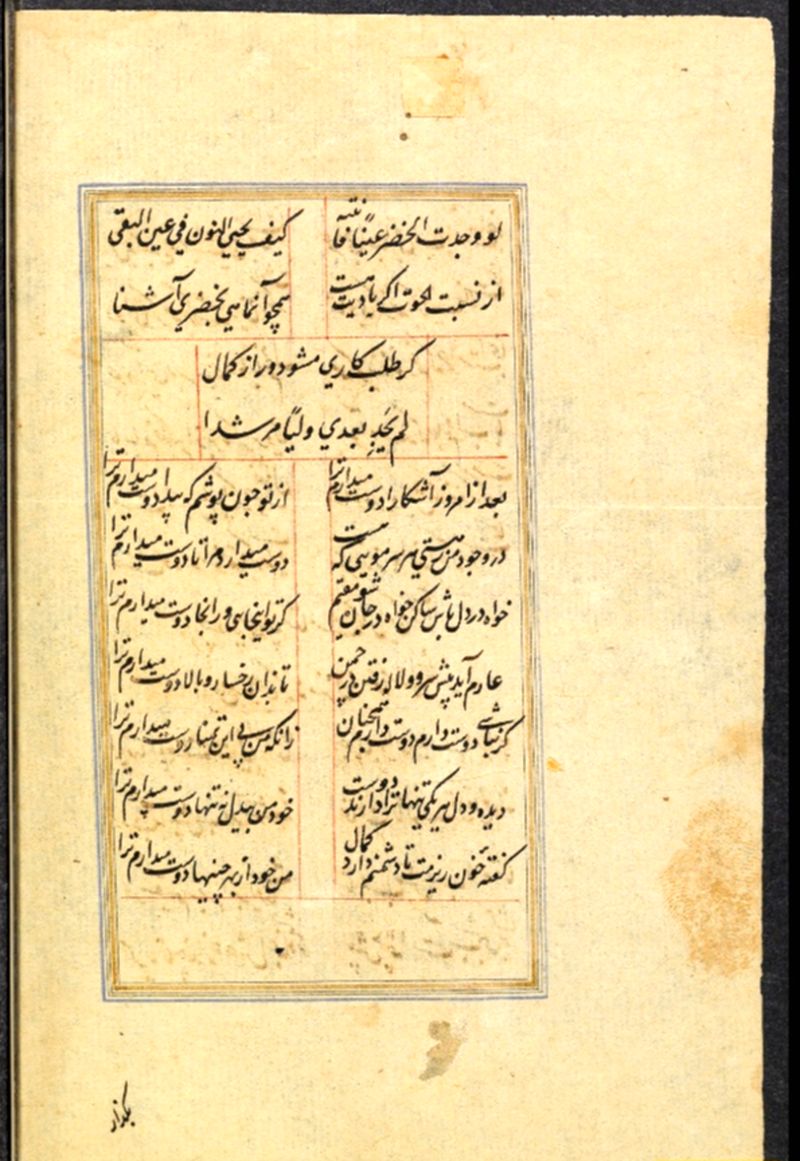 لو وجدت الخضر عینًا فانیه کیف یحیي النون في عین البقی
از نسبت الحوت اگر یادیت هست همچو آنماهی بخضری آشنا
کر طلب کاری مشو دور از کمال
لم تجد بعدي ولیًا مرشدا
بعد از امروز آشکارا دوست میدارم ترا از تو چون پوشم که پیدا دوست میدارم ترا
در وجود من ز هستی هر سر مویی که هست دوست میدارد مرا تا دوست میدارم ترا
خواه در دل باش ساکن خواه در جان شو مقیم کر تو اینجایی ور آنجا دوست میدارم ترا
عارم آید پیش سرو و لاله رفتن در چمن تا بدان رخسار و بالا دوست میدارم ترا
کر نباشی دوست دارم دوست دارم همچنان زانکه من بی این تمنا دوست میدارم ترا
دیده و دل هر یکی تنها ترا دارند دوست خود من بیدل نه تنها دوست میدارم ترا
کفتهٔ خون ریزمت تا دشمنم دارد کمال من خود از بهر چنینها دوست میدارم ترا
بگذار